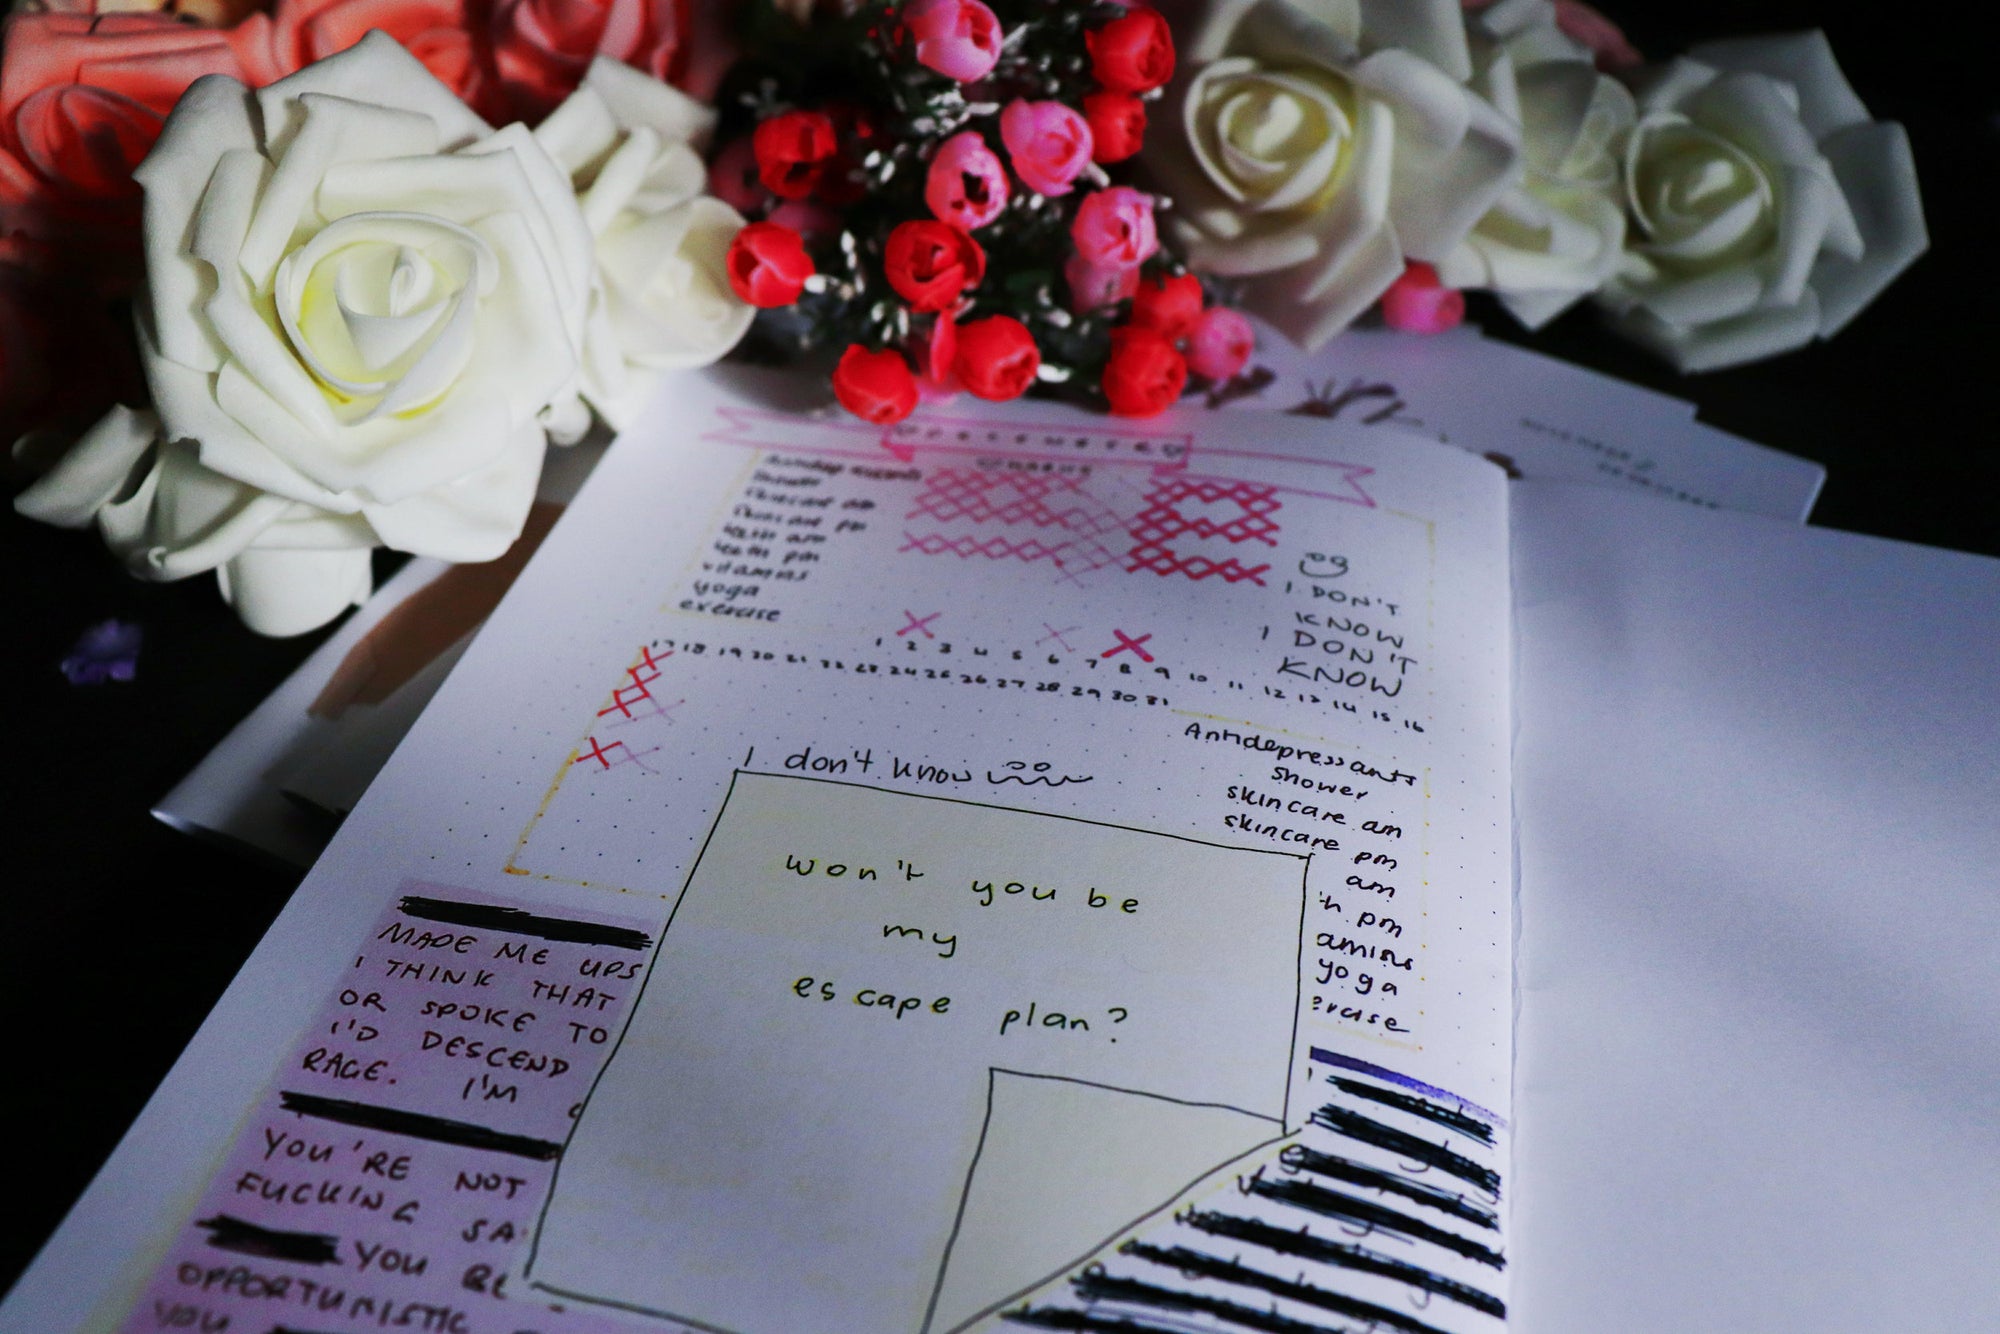 Antidepressants
shower
skincare am
skincare pm
teeth am
teeth pm
vitamins
yoga
exercise
I DON'T
KNOW
I DON'T
KNOW
1 2 3 4 5 6 7 8 9 10 11 12 13 14 15 16
17 18 19 20 21 22 23 24 25 26 27 28 29 30 31
I don't know
Antidepressants
shower
skincare am
skincare pm
am
h pm
amins
yoga
ercise
won't you be
my
escape plan?
MADE ME UPS
I THINK THAT
OR SPOKE TO
I'D DESCEND
RAGE. I'M
YOU'RE NOT
FUCKING SA
YOU BE
OPPORTUNISTIC
YOU